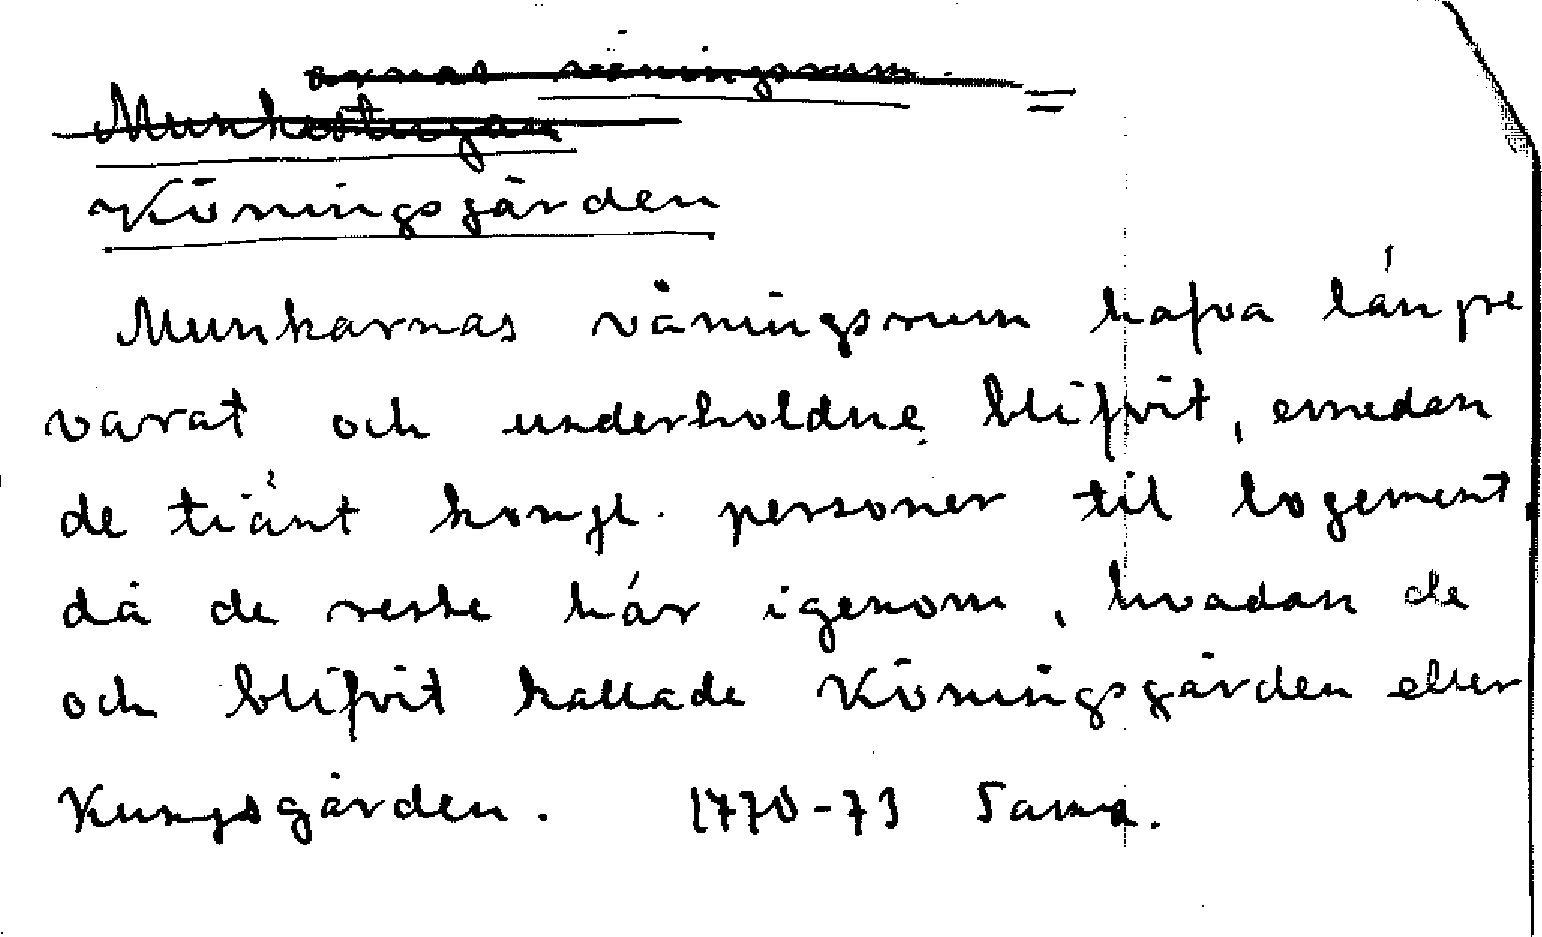 arnas våningsrum
Munkestugan
Köningsgården
Munkarnas våningsrum hafva längre
varat och underholdne blifvit, emedan
de tiänt kongl. personer til logement
då de reste här igenom, hvadan de
och blifvit kallade Köningsgården eller
Kungsgården. 1770-73